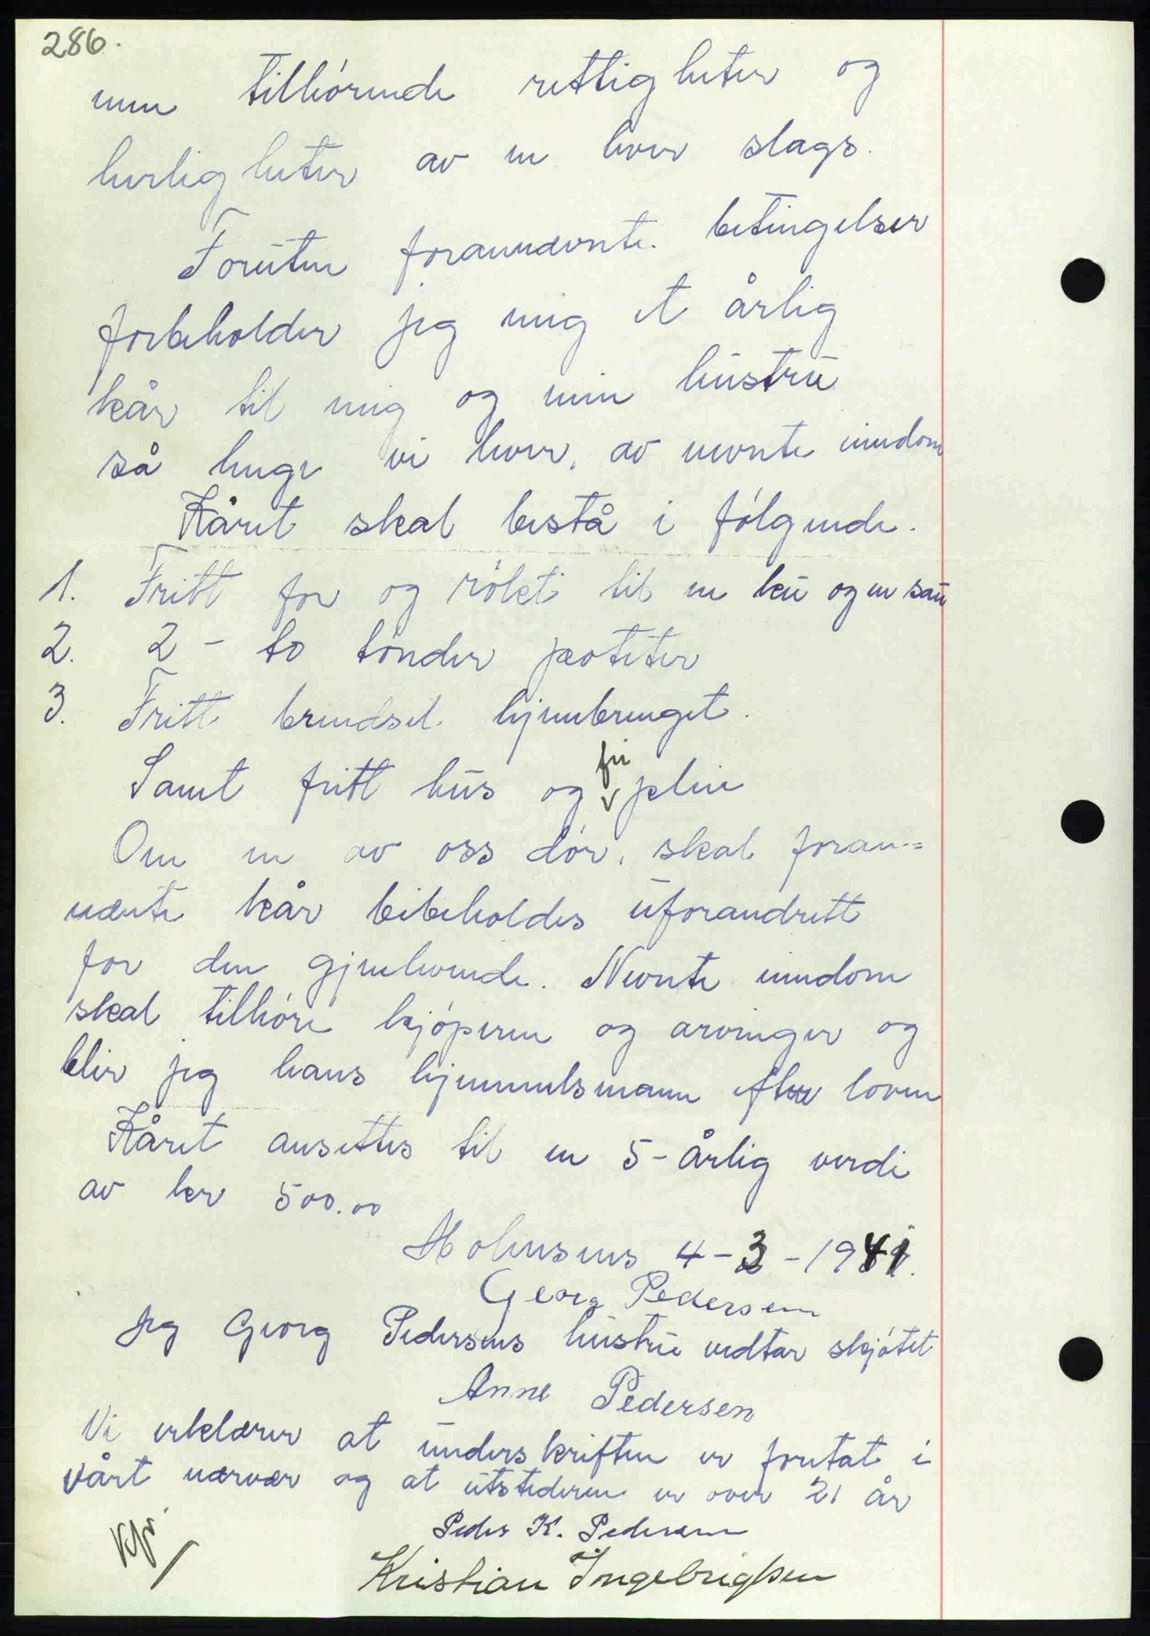 286.
men tilhörende rettigheter og
herligheter av en hver slags.
Foruten forannævnte betingelser
forbeholder jeg mig et årlig
kår til mig og min hustru
så lenge vi lever, av nevnte eiendom
Kåret skal bestå i fölgende.
1. Fritt for og rökt til en ku og en sau
2. 2 - to tönder poteter
3. Fritt brendsel hjembrenget.
fri
Samt fritt hus og v pleie
Om en av oss dör, skal foran=
nævnte kår beibeholdes uforandrett
for den gjenlevende. Nevnte eiendom
skal tilhöre kjöperen og arvinger og
blir jeg hans hjemmelsmann efter loven
Kåret ansettes til en 5-årlig verdi
av kr 500.00
Holmsnes 4-3-1941.
Georg Pedersen
Jeg Georg Pedersens hustru vedtar skjötet
Anne Pedersen
Vi erklærer at underskriften er foretat i
vårt nærvær og at utstederen er over 21 år
Peder K. Pedersen
Kristian Ingebrigtsen